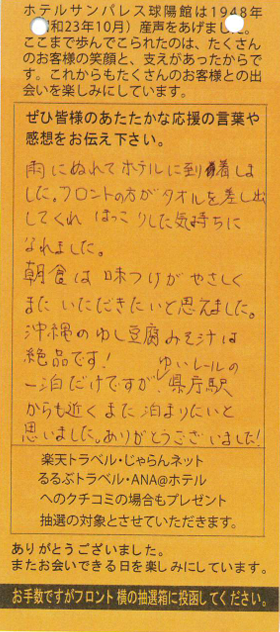 ホテルサンパレス球陽館は1948年
和23年10月）産声をあげました。
ここまで歩んでこられたのは、たくさん
のお客様の笑顔と、支えがあったからで
す。これからもたくさんのお客様との出
会いを楽しみにしています。
ぜひ皆様のあたたかな応援の言葉や
感想をお伝え下さい。
雨にぬれてホテルに到着しま
した。フロントの方がタオルを差し出
してくれ ほっこりした気持ちに
なれました。
朝食は味つけがやさしく
またいただきたいと思えました。
沖縄のゆし豆腐みそ汁は
絶品です！
ゆいレールの
一泊だけですが、県庁駅
からも近くまた泊まりたいと
思いました。ありがとうございました！
楽天トラベル・じゃらんネット
るるぶトラベル・ANA@ホテル
へのクチコミの場合もプレゼント
抽選の対象とさせていただきます。
ありがとうございました。
またお会いできる日を楽しみにしています。
お手数ですがフロント横の抽選箱に投函してください。